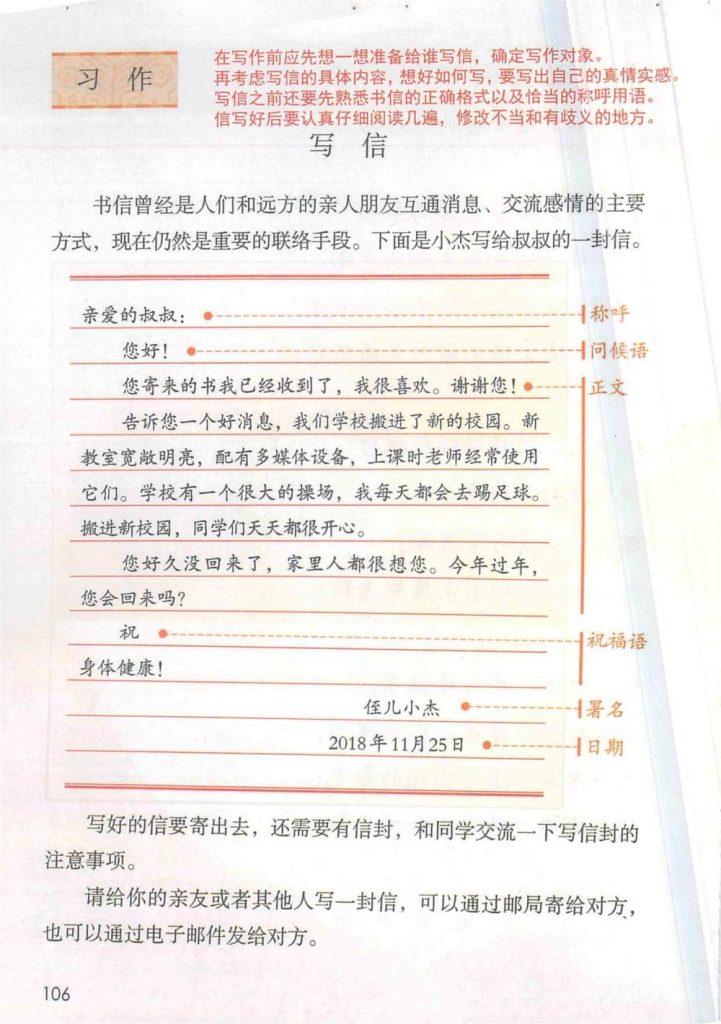 习 作
在写作前应先想一想准备给谁写信，确定写作对象。
再考虑写信的具体内容，想好如何写，要写出自己的真情实感。
写信之前还要先熟悉书信的正确格式以及恰当的称呼用语。
信写好后要认真仔细阅读几遍，修改不当和有歧义的地方。
写 信
书信曾经是人们和远方的亲人朋友互通消息、交流感情的主要
方式，现在仍然是重要的联络手段。下面是小杰写给叔叔的一封信。
亲爱的叔叔： 称呼
您好！ 问候语
您寄来的书我已经收到了，我很喜欢。谢谢您！ 正文
告诉您一个好消息，我们学校搬进了新的校园。新
教室宽敞明亮，配有多媒体设备，上课时老师经常使用
它们。学校有一个很大的操场，我每天都会去踢足球。
搬进新校园，同学们天天都很开心。
您好久没回来了，家里人都很想您。今年过年，
您会回来吗？
祝 祝福语
身体健康！
侄儿小杰 署名
2018年11月25日 日期
写好的信要寄出去，还需要有信封，和同学交流一下写信封的
注意事项。
请给你的亲友或者其他人写一封信，可以通过邮局寄给对方，
也可以通过电子邮件发给对方。
106